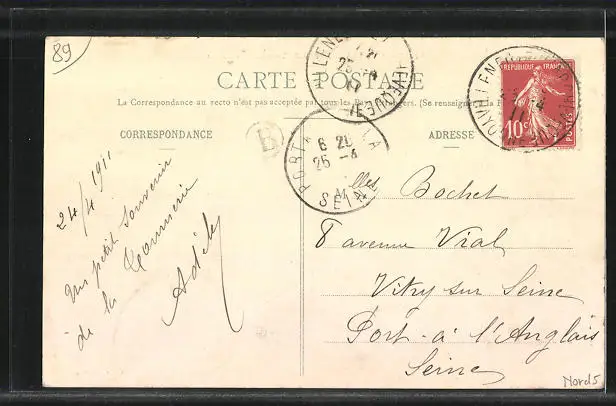 89
CARTE POSTALE
La Correspondance au recto n'est pas acceptée par tous les
CORRESPONDANCE
ADRESSE
REPUBLIQUE FRANÇAISE
10c
POSTES
B
PORT
6 20
25 -4
SEINE
24/4 1911
Un petit souvenir
de la
Adèle
Mlles Bochet
8 avenue Vial
Vitry sur Seine
Port-à l'Anglais
Seine
Nord5